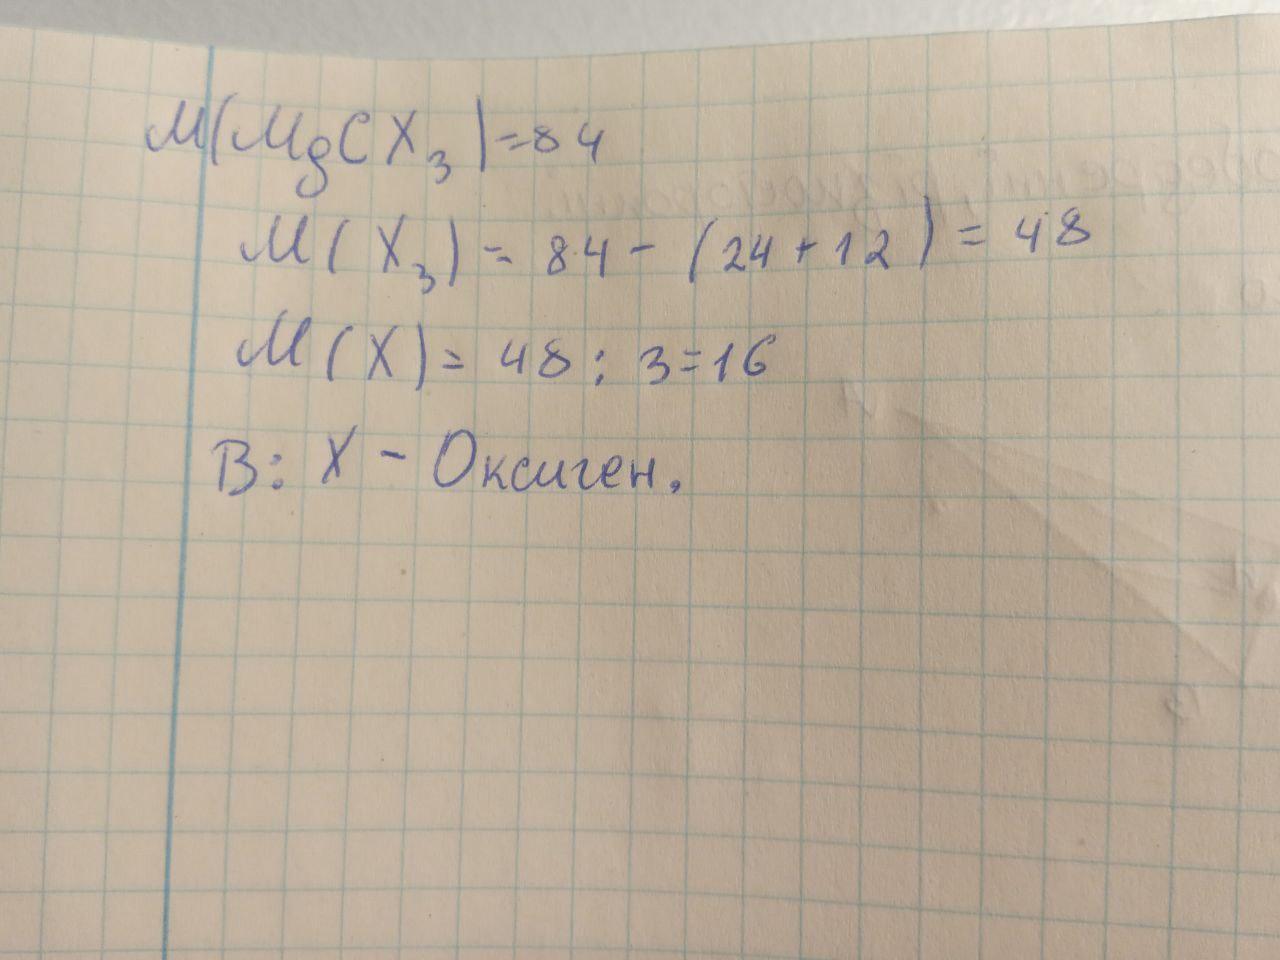 M(MgCX₃)=84
M(X₃) = 84 - (24+12) = 48
M(X) = 48 : 3 = 16
В: X - Оксиген.